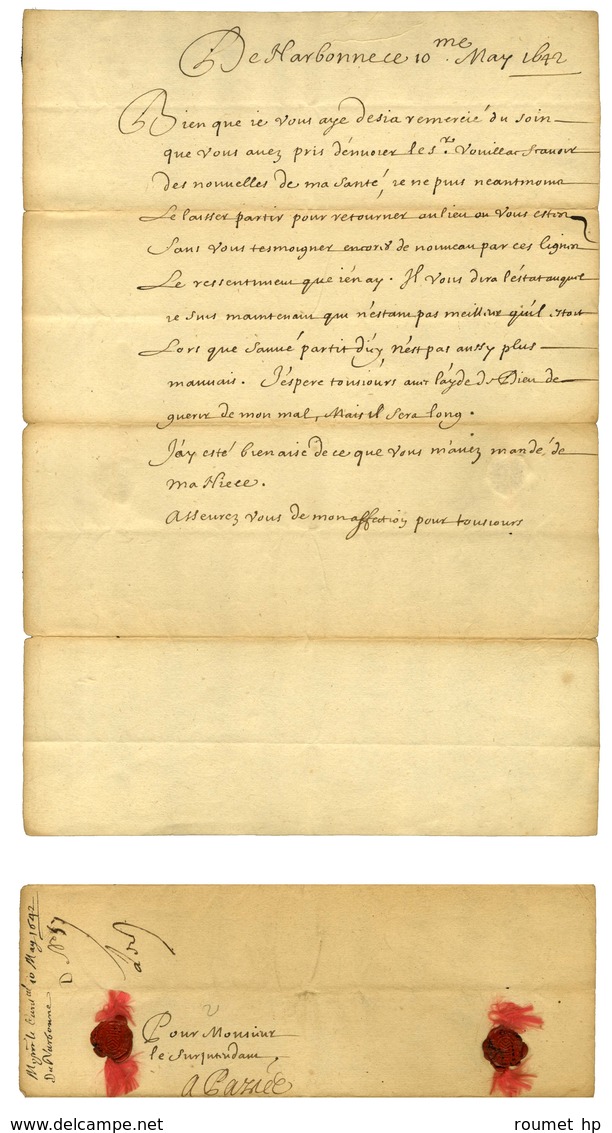 De Narbonne ce 10.me May 1642
Bien que ie vous aye desia remercié du soin
que vous auez pris d'enuoier le sr. Vouillac scauoir
des nouvelles de ma santé, ie ne puis neantmoins
le laisser partir pour retourner au lieu ou vous estes
sans vous tesmoigner encores de nouveau par ces lignes
le ressentiment que i'en ay. Il vous dira l'estat auquel
ie suis maintenant qui n'estant pas meilleur qu'il estoit
lors que Sauué partit d'icy, n'est pas aussy plus
mauuais. J'espere tousiours auec l'ayde de Dieu de
guerir de mon mal, Mais il sera long.
J'ay esté bien aise de ce que vous m'auez mandé de
ma Niece.
Asseurez vous de mon affection pour tousiours
Monsr. le Cardal 10 May 1642
De Narbonne
D No 57
Pour Monsieur
le Surjntendant
roumet hp